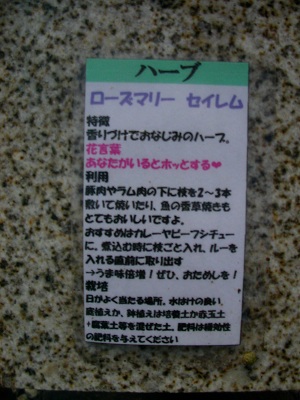 ハーブ
ローズマリー セイレム
特徴
香りづけでおなじみのハーブ。
花言葉
あなたがいるとホッとする♥
利用
豚肉やラム肉の下に枝を2～3本
敷いて焼いたり、魚の香草焼きも
とてもおいしいですよ。
おすすめはカレーやビーフシチュー
に、煮込む時に枝ごと入れ、ルーを
入れる直前に取り出す
→うま味倍増!ぜひ、おためしを!
栽培
日がよく当たる場所。水はけの良い、
庭植えか、鉢植えは培養土か赤玉土
+腐葉土等を混ぜた土。肥料は緩効性
の肥料を与えてください